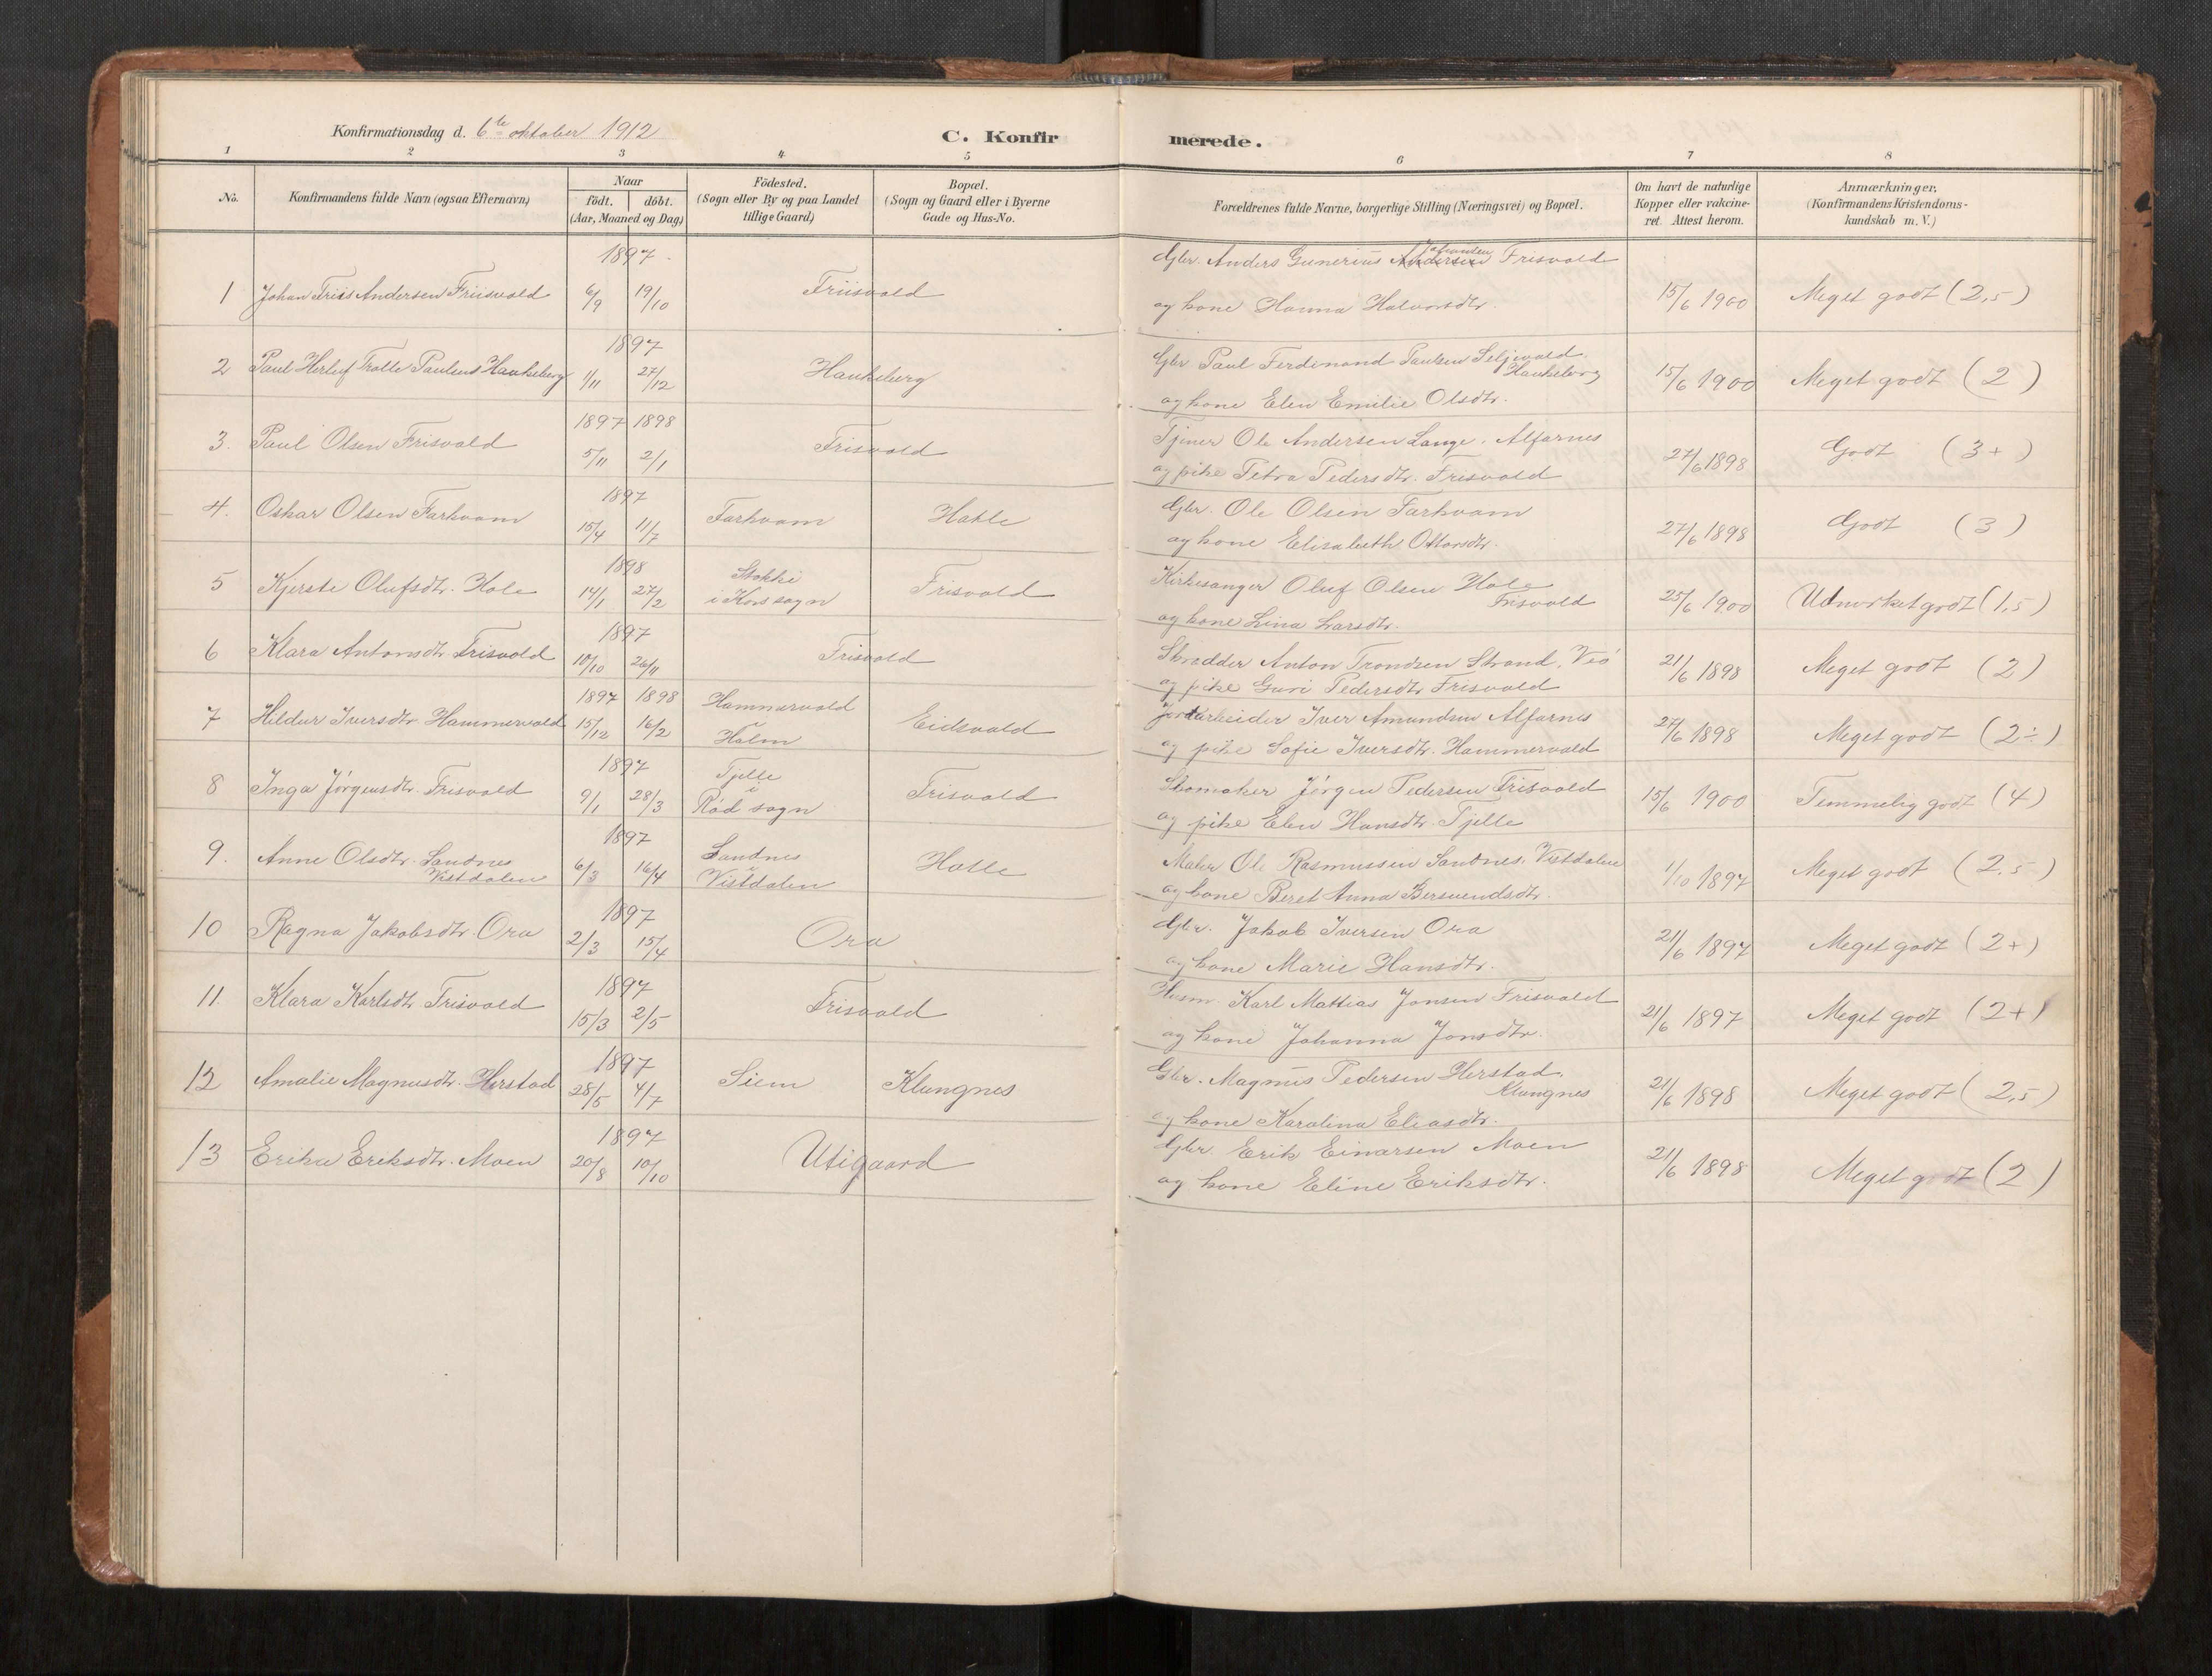 Konfirmationsdag d. 6te oktober 1912
C. Konfirmerede.
1 2 3 4 5 6 7 8
No.
Konfirmandens fulde Navn (ogsaa Efternavn)
Naar
födt. döbt.
(Aar, Maaned og Dag)
Födested.
(Sogn eller By og paa Landet
tillige Gaard)
Bopæl.
(Sogn og Gaard eller i Byerne
Gade og Hus-No.
Forældrenes fulde Navne, borgerlige Stilling (Næringsvei) og Bopæl.
Om havt de naturlige
Kopper eller vakcine-
ret. Attest herom.
Anmærkninger.
(Konfirmandens Kristendoms-
kundskab m. V.)
1897
Gbr. Anders Gunerius Andersen Johansen Frisvold
1 Johan Friis Andersen Friisvold 6/9 19/10 Friisvold
og kone Hanna Halvorsdtr. 15/6 1900 Meget godt (2,5)
1897
2 Paul Herluf Trolle Paulsens Haukeberg 1/11 27/12 Haukeberg
Gbr. Paul Ferdinand Paulsen Seljevold.
Haukeberg
og kone Elen Emilie Olsdtr. 15/6 1900 Meget godt (2)
1897 1898
3. Paul Olsen Frisvold 5/11 2/1 Frisvold
Tjener Ole Andersen Lange. Alfarnes
og pike Petra Pedersdtr. Frisvold 27/6 1898 Godt (3+)
1897
4. Oskar Olsen Farkvam 15/4 11/7 Farkvam Hatle
Gbr. Ole Olsen Farkvam
og kone Elisabeth Ottarsdtr. 27/6 1898 Godt (3)
1898
5 Kjersti Olufsdtr. Hole 14/1 27/2 Stokke
i Kors sogn Frisvold
Kirkesanger Oluf Olsen Hole
Frisvold
og kone Lina Larsdtr. 25/6 1900 Udmerket godt (1,5)
1897
6 Klara Antonsdtr. Frisvold 10/10 26/11 Frisvold
Skrædder Anton Trondsen Strand, Veö
og pike Guri Pedersdtr Frisvold 21/6 1898 Meget godt (2)
1897 1898
7 Hildur Iversdtr. Hammervold 15/12 16/2 Hammervold
i
Holm Eidsvold
Jordarbeider Iver Amundsen Alfarnes
og pike Sofie Iversdtr. Hammervold 27/6 1898 Meget godt (2÷)
1897
8 Inga Jörgensdtr. Frisvold 9/1 28/3 Tjelle
i
Röd sogn Frisvold
Skomaker Jörgen Pedersen Frisvold
og pike Elen Hansdtr. Tjelle 15/6 1900 Temmelig godt (4)
1897
9. Anne Olsdtr. Sandnes
Vistdalen 6/3 16/4 Sandnes
i
Vistdalen Hatle
Maler Ole Rasmussen Sandnes, Vistdalen
og kone Beret Anna Bersvendsdtr. 1/10 1897 Meget godt (2,5)
1897
10 Ragna Jakobsdtr. Ora 2/3 15/4 Ora
Gbr. Jakob Iversen Ora
og kone Marie Hansdtr. 21/6 1897 Meget godt (2+)
1897
11. Klara Karlsdtr Frisvold 15/3 2/5 Frisvold
Husm. Karl Mathias Jonsen Frisvold
og kone Johanna Jonsdtr. 21/6 1897 Meget godt (2+)
1897
12 Amalie Magnusdtr. Herstad 28/5 4/7 Siem Klungnes
Gbr. Magnus Pedersen Herstad.
Klungnes
og kone Karolina Eliasdtr. 21/6 1898 Meget godt (2,5)
1897
13 Erika Eriksdtr. Moen 20/8 10/10 Utigaard
Gbr. Erik Einarsen Moen
og kone Eline Eriksdtr. 21/6 1898 Meget godt (2)